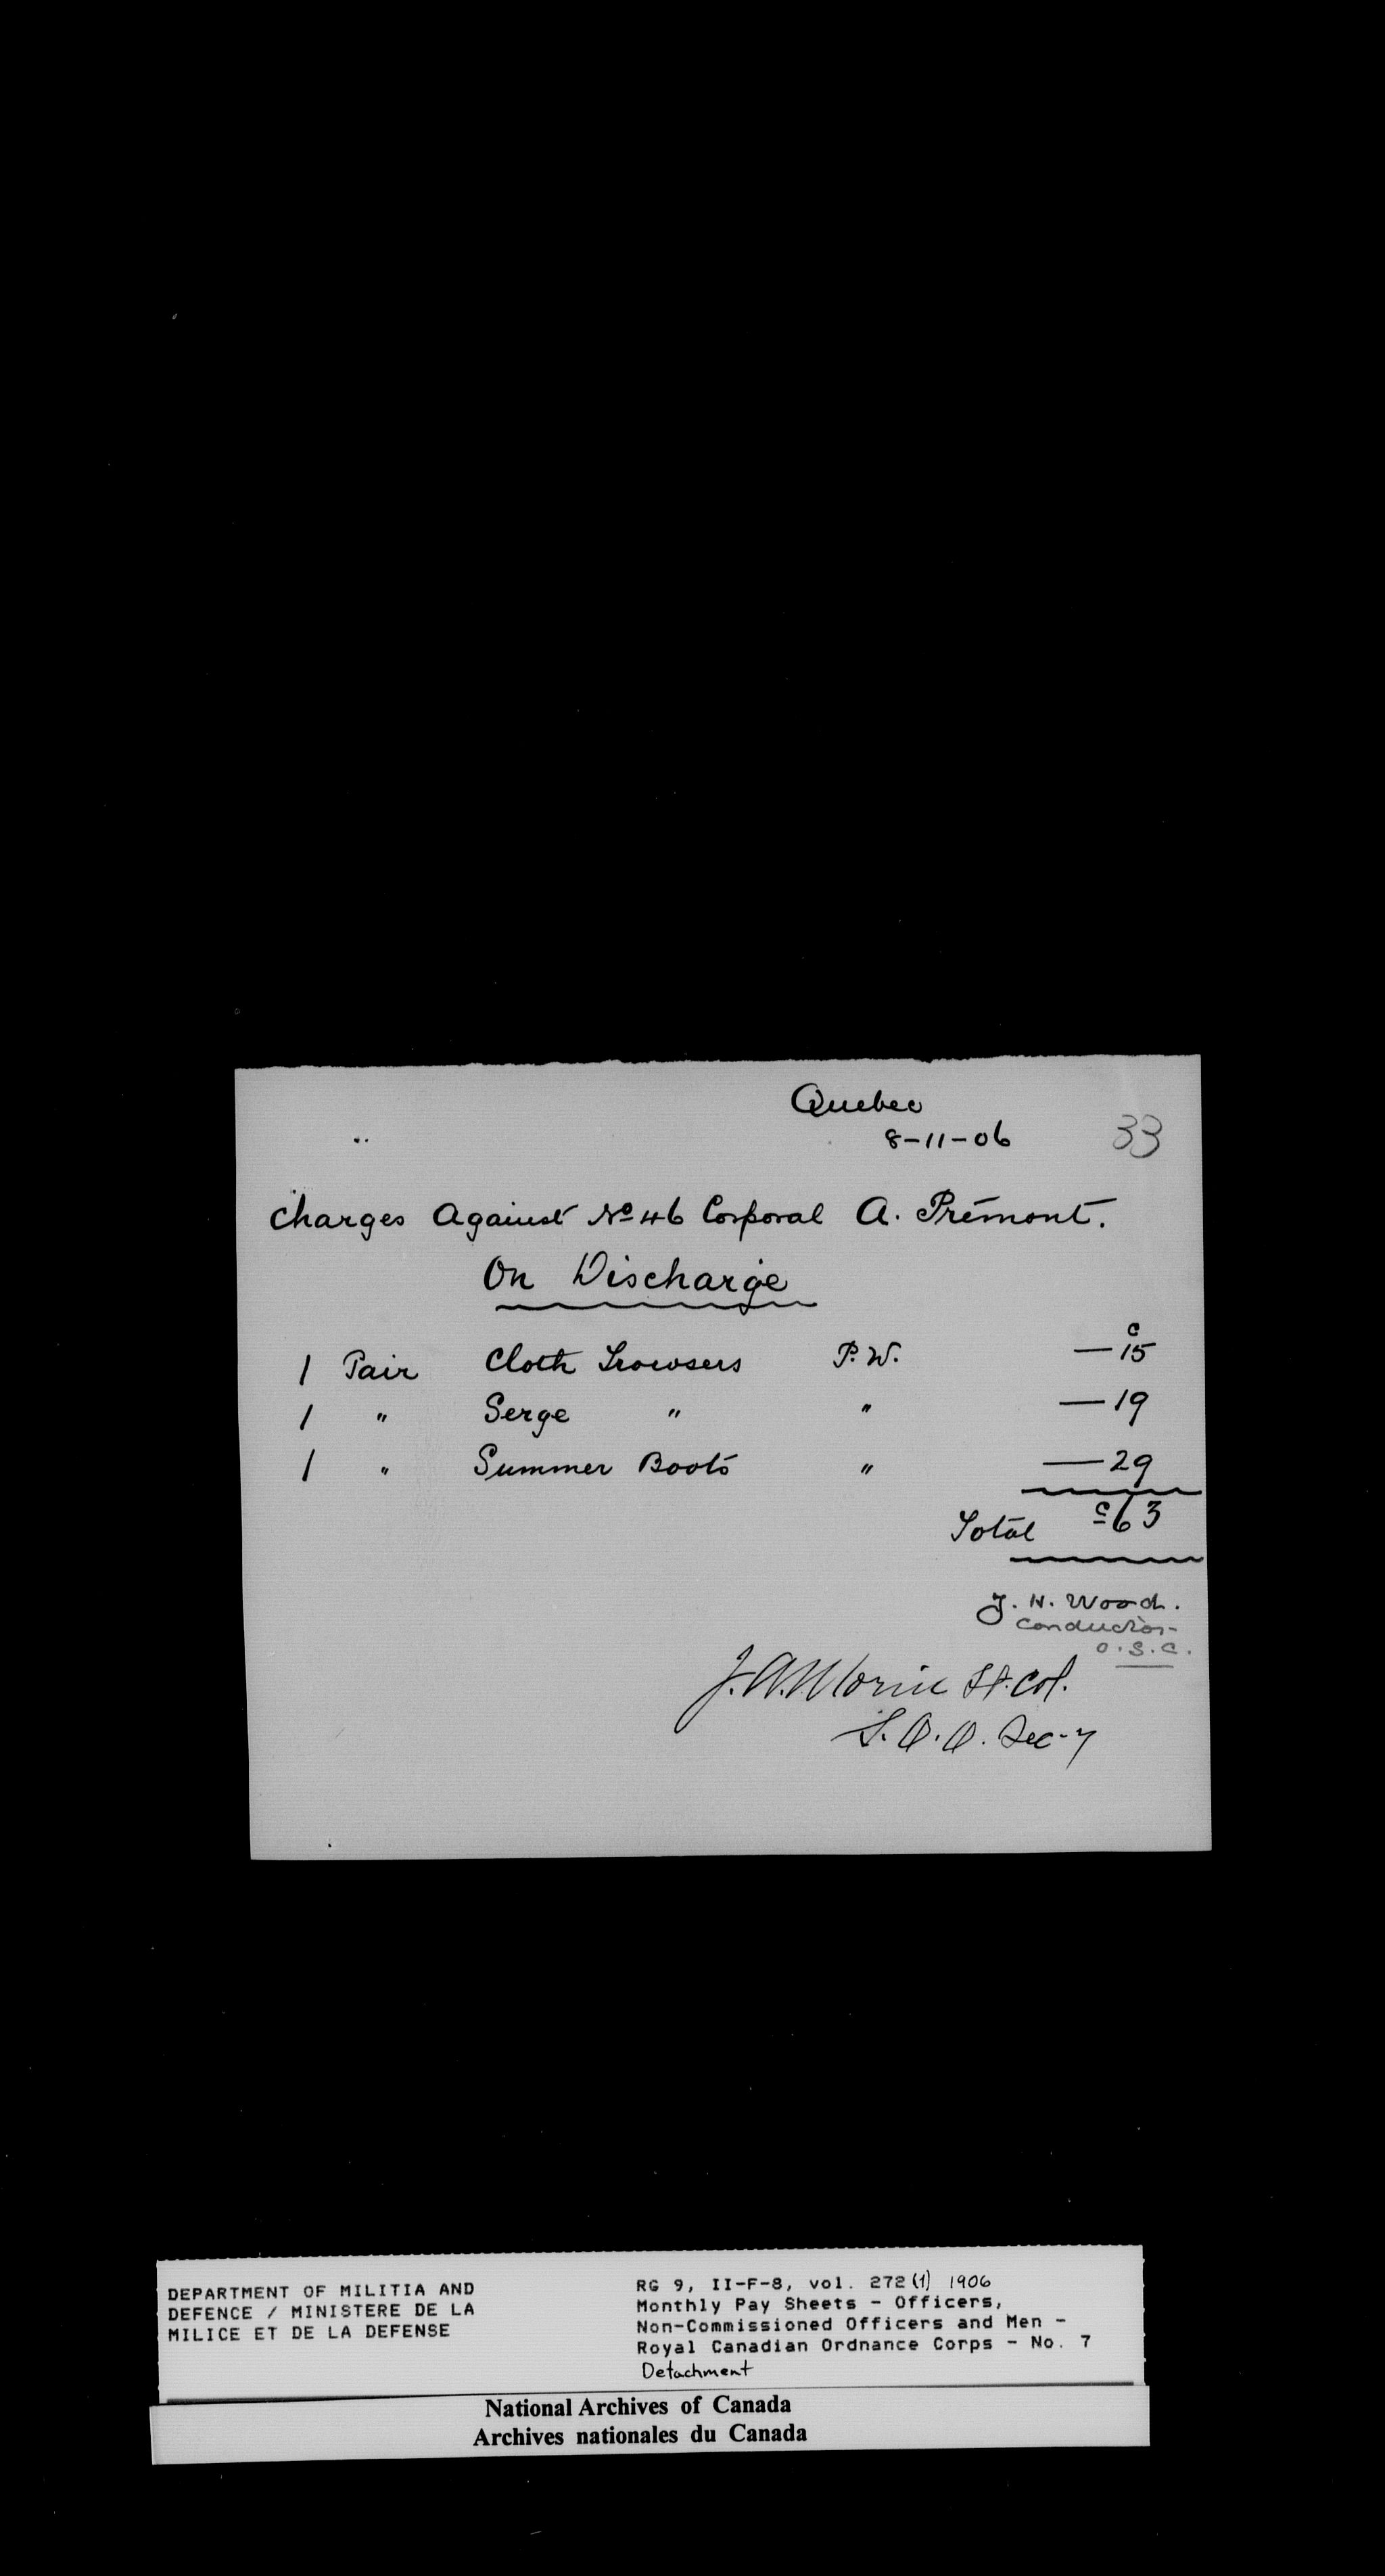 Quebec
8-11-06
33
Charges Against No 46 Corporal A. Premont.
On Discharge
1 Pair Cloth Trowsers P.W. — 15 c
1 " Serge " " — 19
1 " Summer Boots " — 29
Total c 63
J. H. Wood.
Conductor
O.S.C.
J. A. Morin Lt. Col.
S.O.O. Sec-7
DEPARTMENT OF MILITIA AND
DEFENCE / MINISTERE DE LA
MILICE ET DE LA DEFENSE
RG 9, II-F-8, vol. 272 (1) 1906
Monthly Pay Sheets - Officers,
Non-Commissioned Officers and Men -
Royal Canadian Ordnance Corps - No. 7
Detachment
National Archives of Canada
Archives nationales du Canada